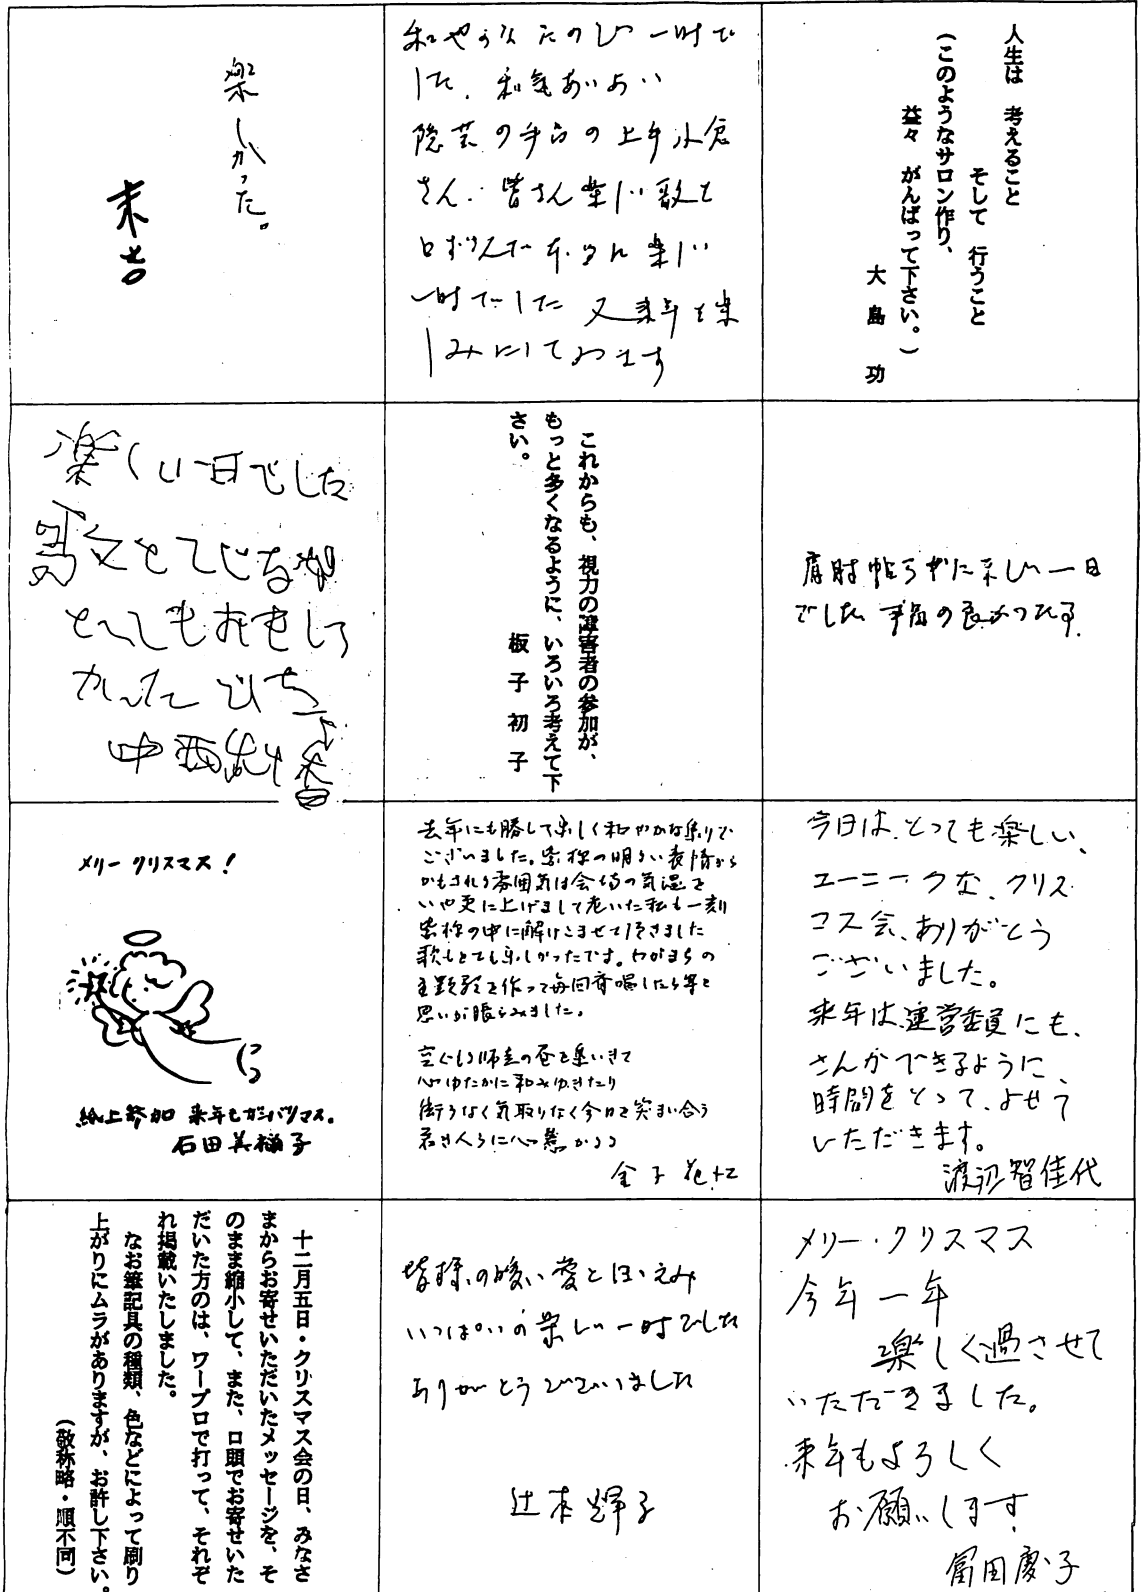 人生は 考えること
そして 行うこと
(このようなサロン作り、
益々 がんばって下さい。)
大島 功
和やかなたのしい一時で
した、和気あいあい
隠芸の手品の上手小倉
さん、皆さん楽しい歌を
口ずさんだ
楽しい
一時でした 又来年を楽
しみにしております
楽しかった。
末吉
楽しい一日で
でした 手品の良かった
これからも、視力の障害者の参加が、
もっと多くなるように、いろいろ考えて下
さい。
板子初子
楽しい一日でした
歌とてじなが
とってもおもしろ
かったでした
中西
今日は、とっても楽しい、
ユーニークな、クリス
マス会、ありがとう
ございました。
来年は、運営委員にも、
さんかできるように、
時間をとって、よせて
いただきます。
渡辺智佳代
去年にも勝して楽しく和やかな集りで
ございました。皆様の明るい表情から
かもされる雰囲気は会場の気温を
いや更に上げまして老いた私も一刻
皆様の中に解けこませて頂きました
歌もとても楽しかったです。わがまちの
主題歌を作って毎回斉唱したら等と
思いが脹らみました。
心ゆたかに和みゆきたり
街うなく気取りなく今日を笑まい合う
若き人らに心
金子
メリー クリスマス!
紙上参加 来年もガンバリマス。
石田美禰子
メリー・クリスマス
今年一年
楽しく過させて
いただきました。
来年もよろしく
お願いします
冨田慶子
皆様の暖い愛とほゝえみ
いっぱいの楽しい一時でした
ありがとうございました
辻本輝子
十二月五日・クリスマス会の日、みなさ
まからお寄せいただいたメッセージを、そ
のまま縮小して、また、口頭でお寄せいた
だいた方のは、ワープロで打って、それぞ
れ掲載いたしました。
なお筆記具の種類、色などによって刷り
上がりにムラがありますが、お許し下さい。
(敬称略・順不同)